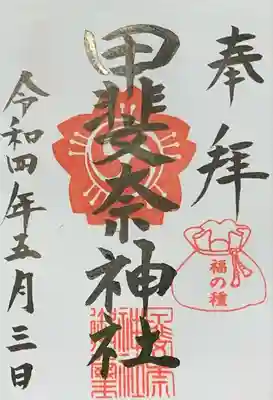 奉拝
甲斐奈神社
福の種
令和四年五月三日